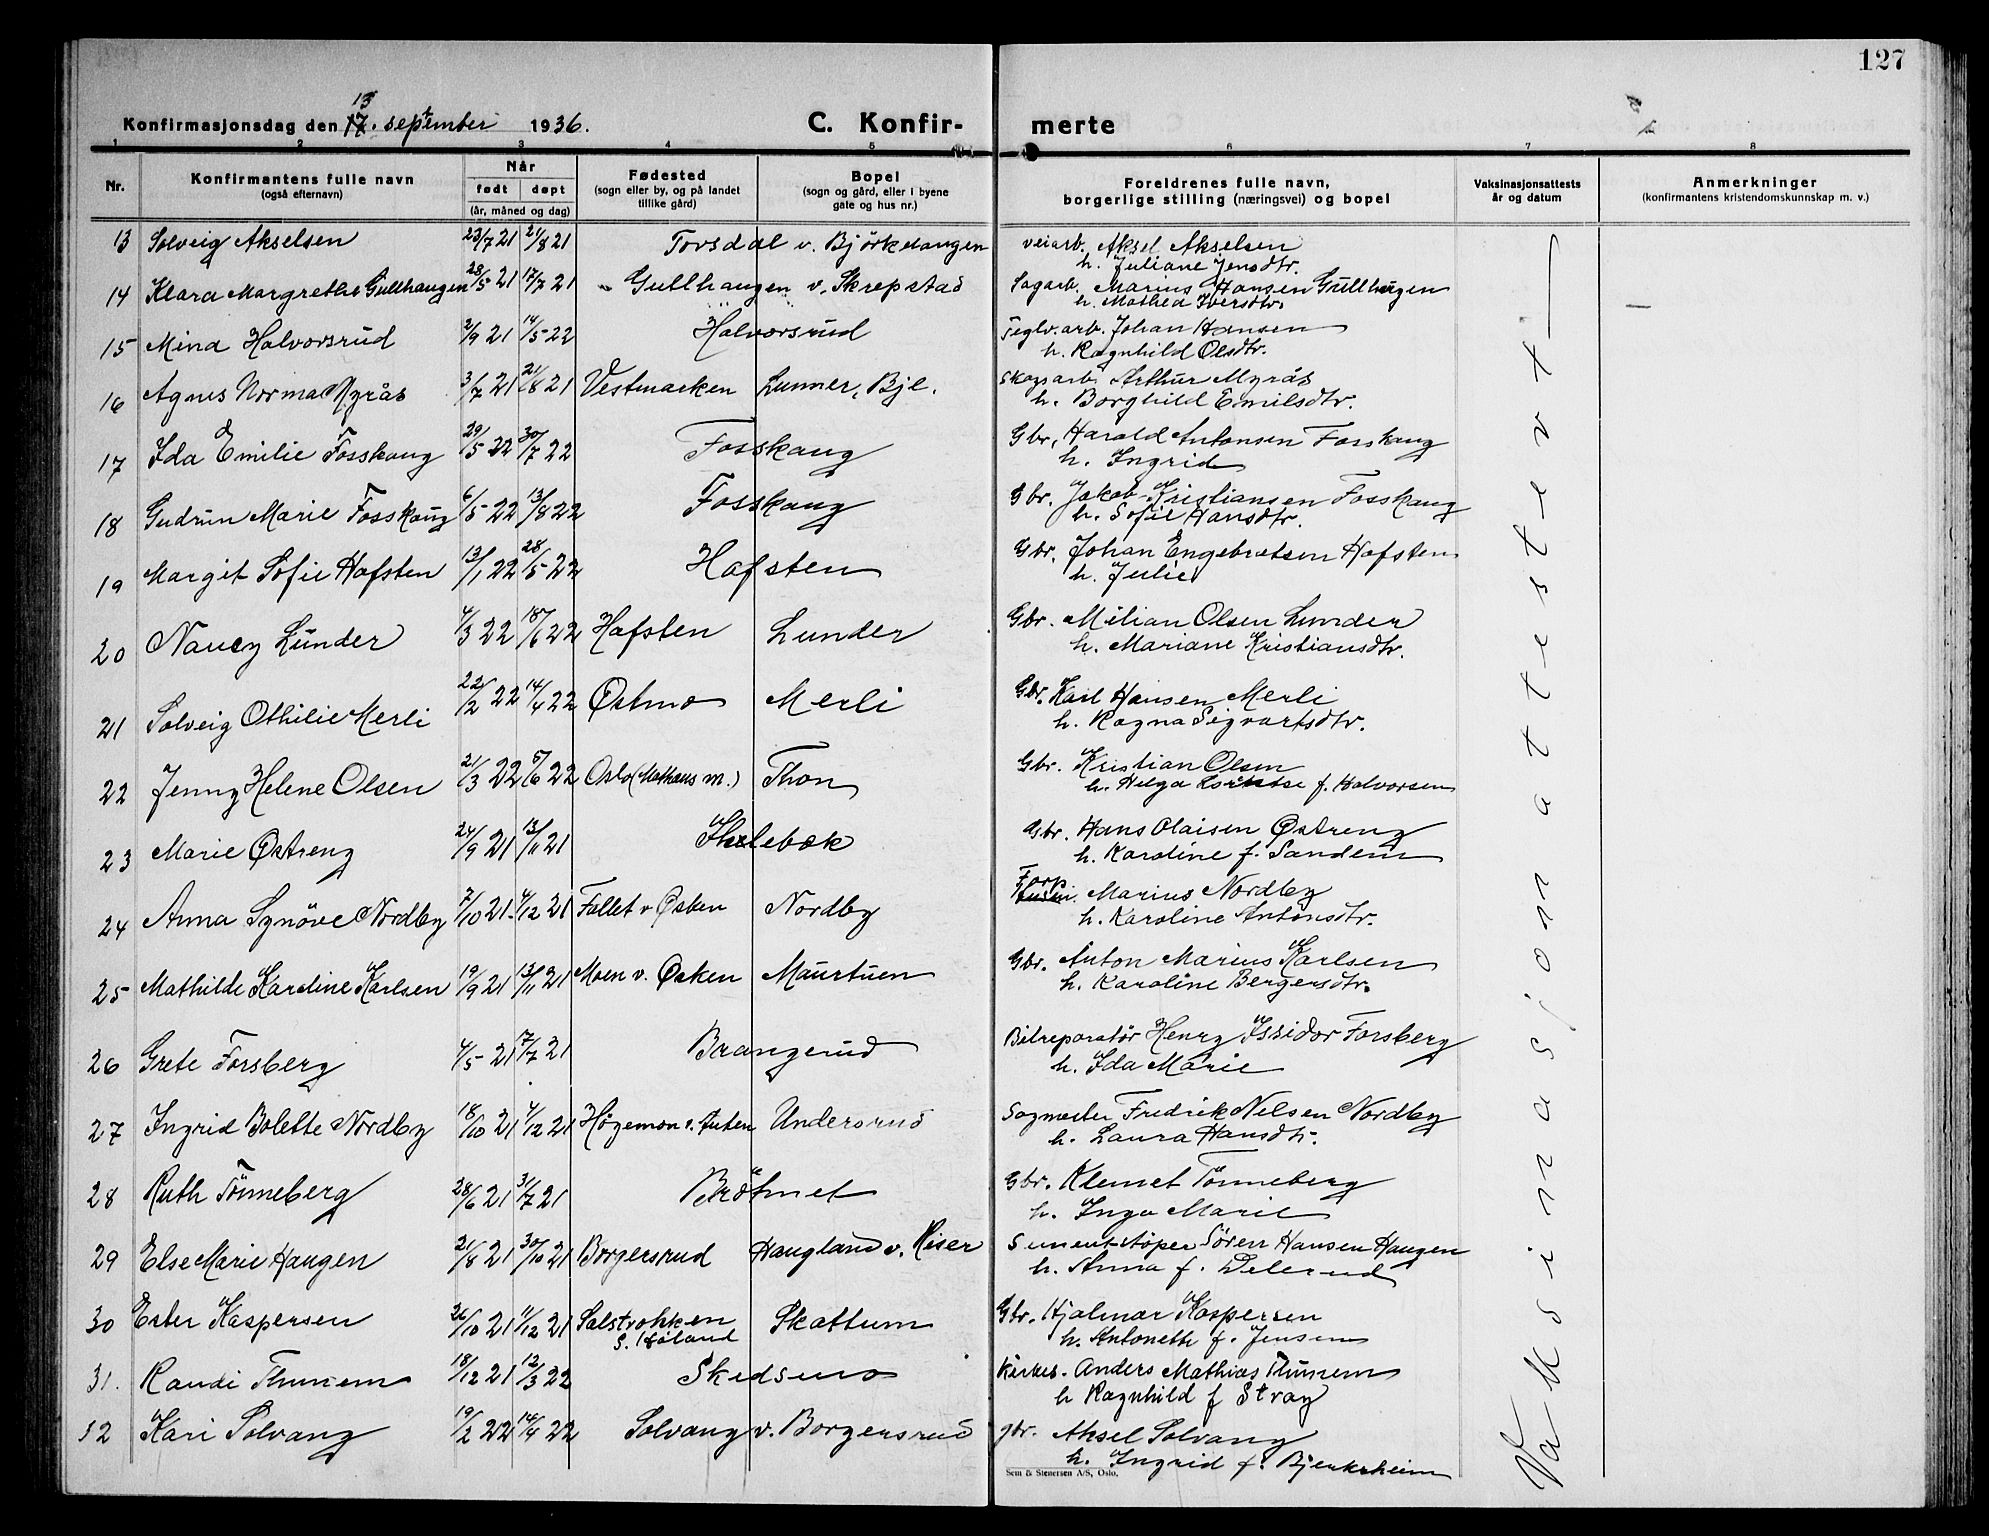 127
13
Konfirmasjonsdag den 17. september 1936. C. Konfir- merte
1 2 3 4 5 6 7 8
Nr. Konfirmantens fulle navn (også efternavn) Når født døpt (år, måned og dag) Fødested (sogn eller by, og på landet tillike gård) Bopel (sogn og gård, eller i byene gate og hus nr.) Foreldrenes fulle navn, borgerlige stilling (næringsvei) og bopel Vaksinasjonsattests år og datum Anmerkninger (konfirmantens kristendomskunnskap m. v.)
13 Solveig Akselsen 23/7 21 21/8 21 Tovsdal v. Björkelangen veiarb. Aksel Akselsen
h. Juliane Jensdtr.
14 Klara Margrethe Gullhaugen 28/5 21 17/7 21 Gullhaugen v. Skrepstad Sagarb. Marius Hansen Gullhaugen
h. Mathea Iversdtr.
15 Mina Halvorsrud 2/9 21 14/5 22 Halvorsrud Teglv.arb. Johan Hansen
h. Ragnhild Olsdtr.
16 Agnes Norma Myrås 3/7 21 21/8 21 Vestmarken Lunner, Bjl. Skogsarb. Arthur Myrås
h. Borghild Emilsdtr.
17 Ida Emilie Fosskaug 29/5 22 30/7 22 Fosskaug Gbr. Harald Antonsen Fosskaug
h. Ingrid
18 Gudrun Marie Fosskaug 6/5 22 13/8 22 Fosskaug Gbr. Jakob Kristiansen Fosskaug
h. Sofie Hansdtr.
19 Margit Sofie Hafsten 13/1 22 28/5 22 Hafsten Gbr. Johan Engebretsen Hafsten
h. Julie
20 Nancy Lunder 4/3 22 18/6 22 Hafsten Lunder Gbr. Milian Olsen Lunder
h. Mariane Kristiansdtr.
21 Solveig Othilie Merli 22/2 22 14/4 22 Østmo Merli Gbr. Karl Hansen Merli
h. Ragna Sigvartsdtr.
22 Jenny Helene Olsen 21/3 22 5/6 22 Oslo (Matheus m.) Thon Gbr. Kristian Olsen
h. Helga f. Halvorsen
23 Marie Østreng 24/9 21 13/11 21 Gbr. Hans Olaisen Østreng
h. Karoline f. Sandem
24 Anna Synöve Nordby 7/10 21 4/12 21 Fallet v Øsken Nordby Forp. Marius Nordby
h. Karoline Antonsdtr.
25 Mathilde Karoline Karlsen 19/9 21 13/11 21 Moen v. Øsken Maurtuen Gbr. Anton Marius Karlsen
h. Karoline Bergersdtr.
26 Grete Forsberg 4/5 21 17/7 21 Brangerud Bilreparatör Henry Issidor Forsberg
h. Ida Marie
27 Ingrid Bolette Nordby 18/10 21 4/12 21 Högemon v. Auten Undersrud Sagmester Fredrik Nelsen Nordby
h. Laura Hansdtr.
28 Ruth Tönneberg 28/6 21 31/7 21 Bråtnet Gbr. Klemet Tönneberg
h. Inga Marie
29 Else Marie Haugen 21/8 21 30/10 21 Borgersrud Haugland v. Riser Sementstöper Sören Hansen Haugen
h. Anna f. Delerud
30 Ester Kaspersen 26/10 21 11/12 21 Salstrokken Skattum Gbr. Hjalmar Kaspersen
S. Höland h. Antonette f. Jensen
31. Randi Thunem 18/12 21 12/3 22 Skedsmo Kirkes. Anders Mathias Thunem
h Ragnhild f Stray
32 Kari Solvang 19/2 22 14/4 22 Solvang v. Borgersrud gbr. Aksel Solvang
h. Ingrid f. Bjerkeheim
Vaksinasjonsattestert
Sem & Stenersen A/S, Oslo.